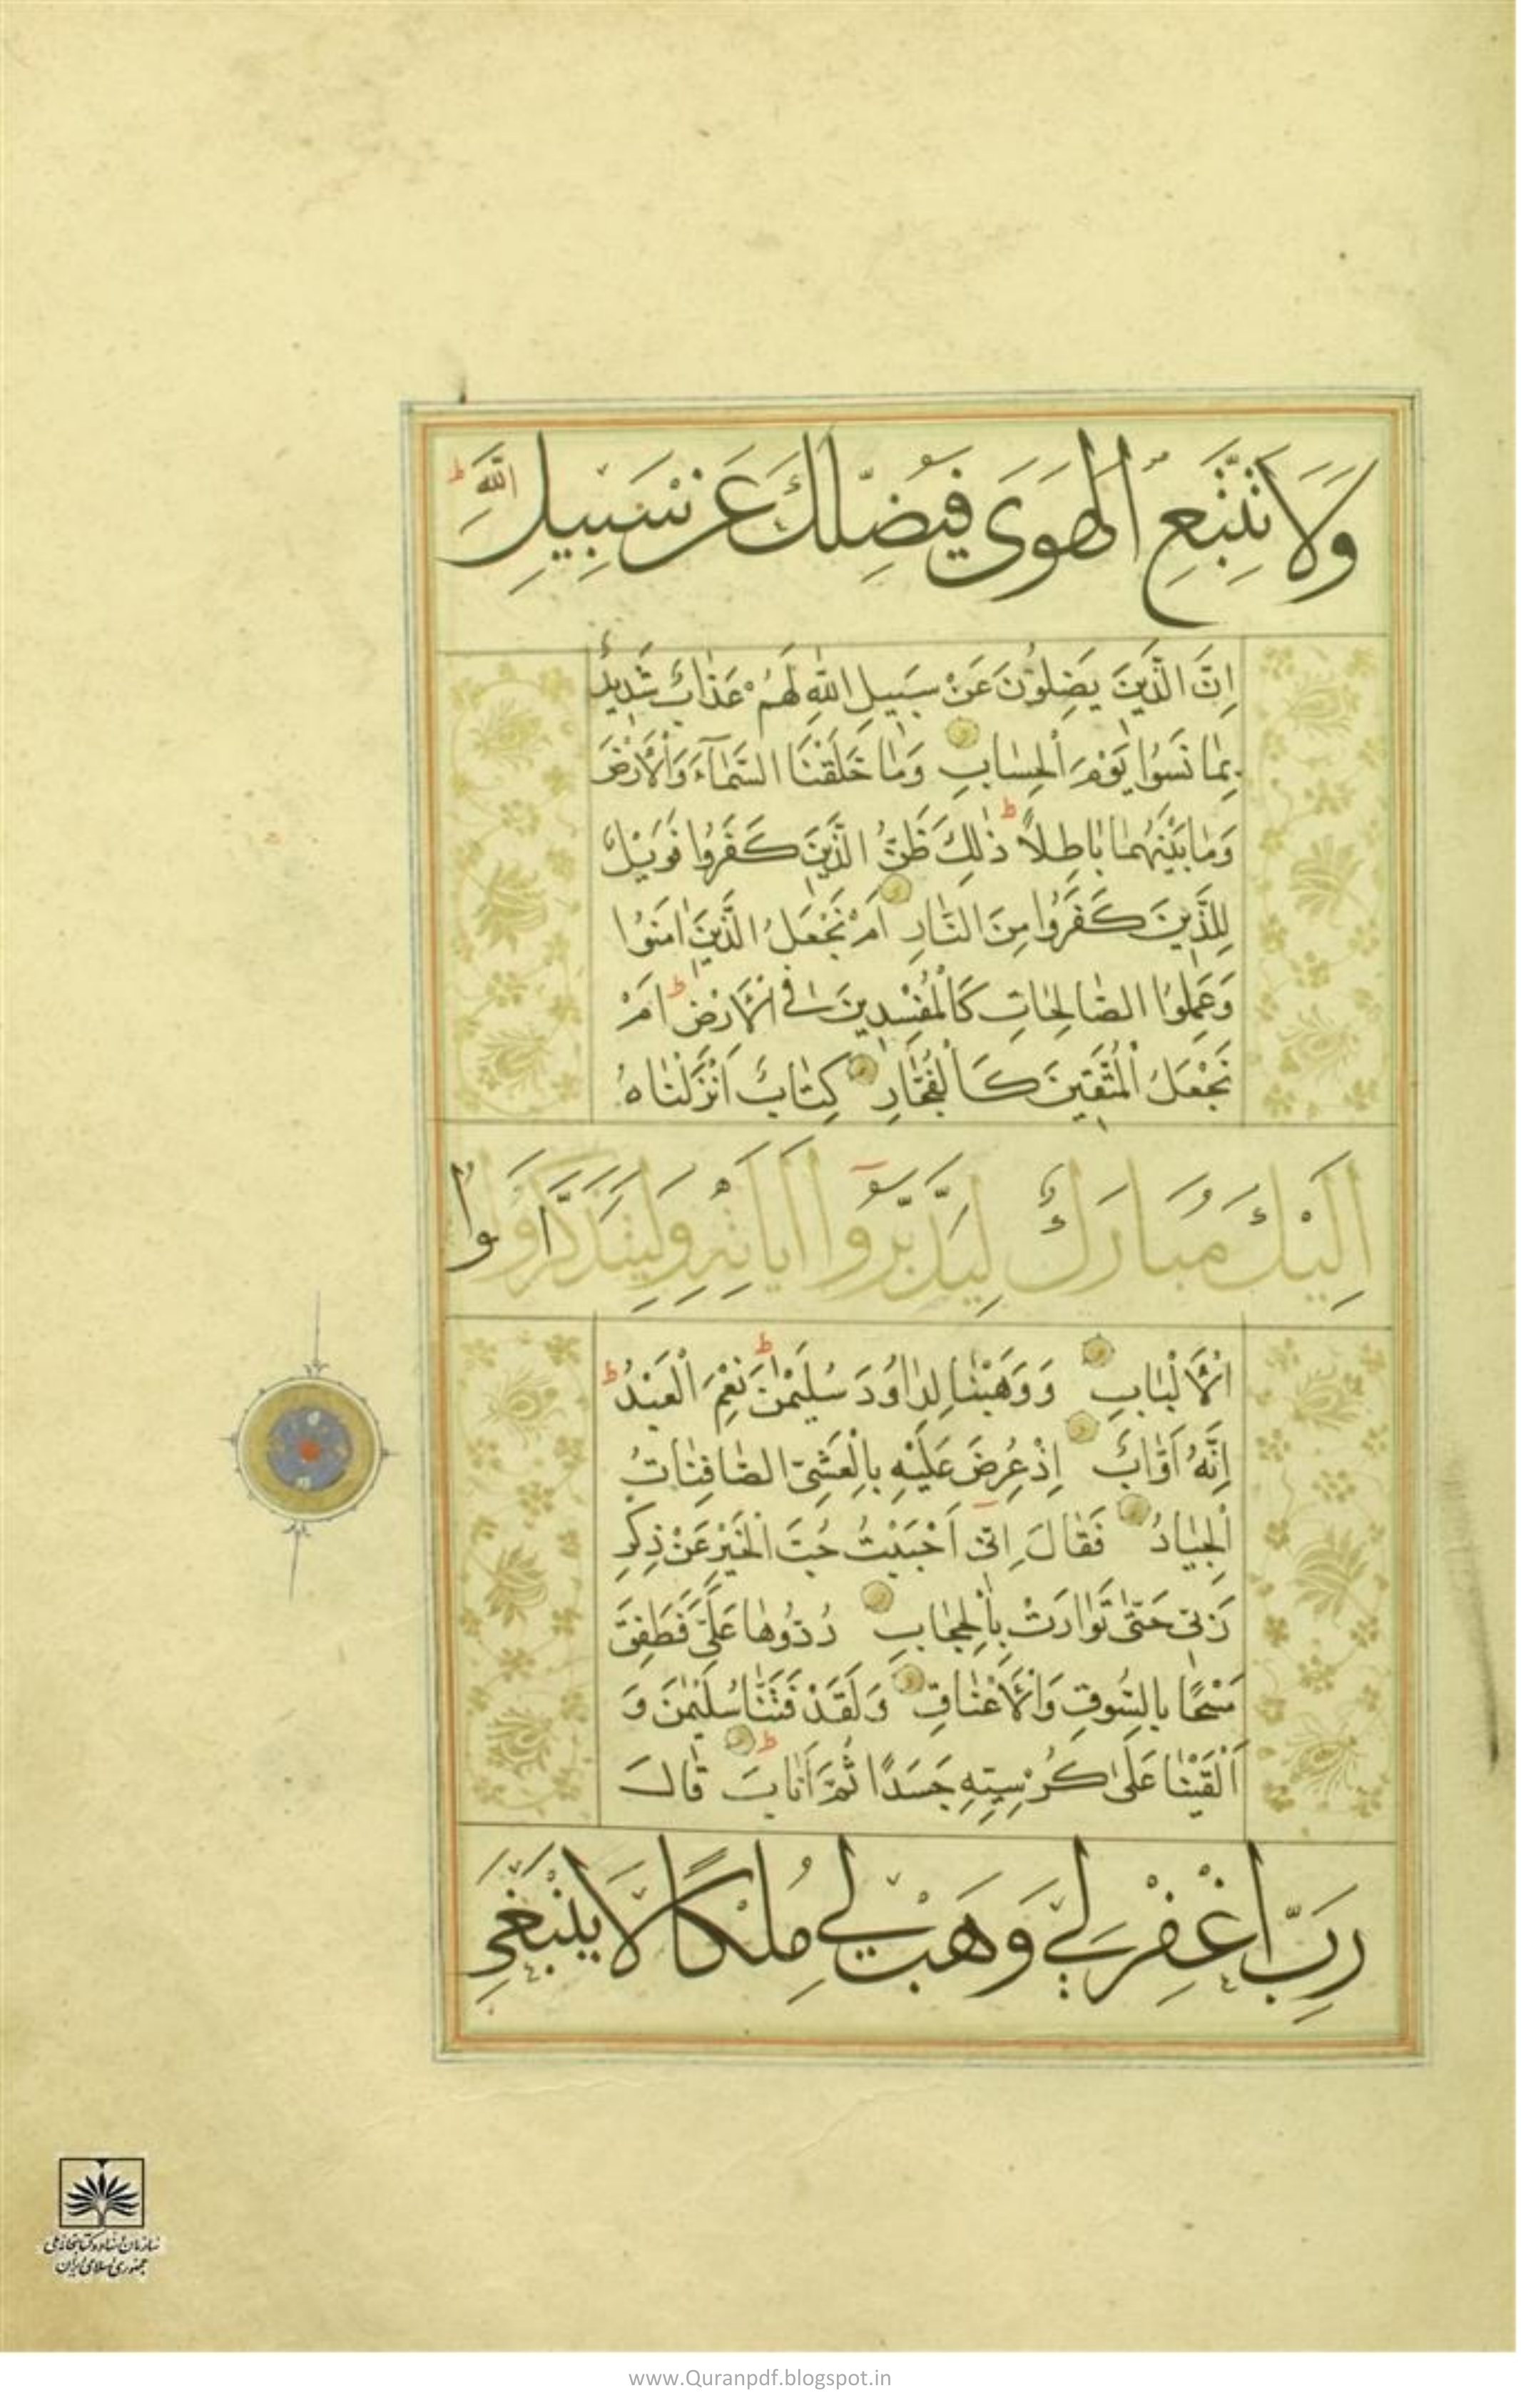 وَلَا تَتَّبِعِ الْهَوَىٰ فَيُضِلَّكَ عَنْ سَبِيلِ اللَّهِ ط
اِنَّ الَّذِينَ يَضِلُّونَ عَنْ سَبِيلِ اللَّهِ لَهُمْ عَذَابٌ شَدِيدٌ
بِمَا نَسُوا يَوْمَ الْحِسَابِ وَمَا خَلَقْنَا السَّمَآءَ وَالْاَرْضَ
وَمَا بَيْنَهُمَا بَاطِلًا ط ذٰلِكَ ظَنُّ الَّذِينَ كَفَرُوا فَوَيْلٌ
لِلَّذِينَ كَفَرُوا مِنَ النَّارِ اَمْ نَجْعَلُ الَّذِينَ اٰمَنُوا
وَعَمِلُوا الصَّالِحَاتِ كَالْمُفْسِدِينَ فِي الْاَرْضِ ط اَمْ
نَجْعَلُ الْمُتَّقِينَ كَالْفُجَّارِ كِتَابٌ اَنْزَلْنَاهُ
اِلَيْكَ مُبَارَكٌ لِيَدَّبَّرُوا اٰيَاتِهِ وَلِيَتَذَكَّرَ اُولُوا
الْاَلْبَابِ وَوَهَبْنَا لِدَاوُدَ سُلَيْمٰنَ ط نِعْمَ الْعَبْدُ ط
اِنَّهُ اَوَّابٌ اِذْ عُرِضَ عَلَيْهِ بِالْعَشِيِّ الصَّافِنَاتُ
الْجِيَادُ فَقَالَ اِنِّي اَحْبَبْتُ حُبَّ الْخَيْرِ عَنْ ذِكْرِ
رَبِّي حَتّٰى تَوَارَتْ بِالْحِجَابِ رُدُّوهَا عَلَيَّ فَطَفِقَ
مَسْحًا بِالسُّوقِ وَالْاَعْنَاقِ وَلَقَدْ فَتَنَّا سُلَيْمٰنَ وَ
اَلْقَيْنَا عَلٰى كُرْسِيِّهِ جَسَدًا ثُمَّ اَنَابَ ط قَالَ
رَبِّ اغْفِرْ لِي وَهَبْ لِي مُلْكًا لَا يَنْبَغِي
سازمان اسناد و کتابخانه ملی
جمهوری اسلامی ایران
www.Quranpdf.blogspot.in